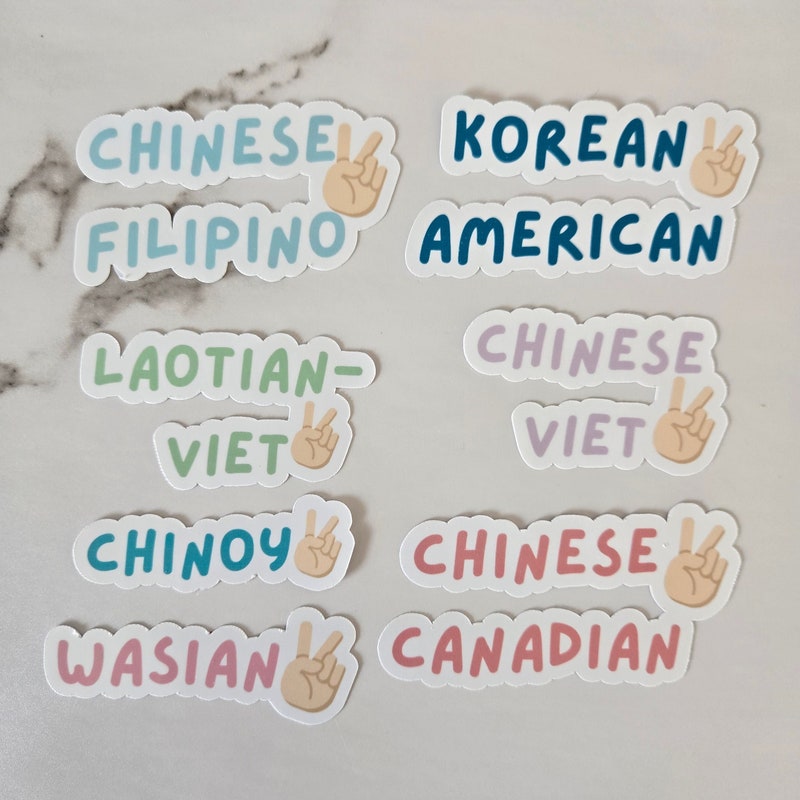 CHINESE
FILIPINO
KOREAN
AMERICAN
LAOTIAN-
VIET
CHINESE
VIET
CHINOY
CHINESE
CANADIAN
WASIAN